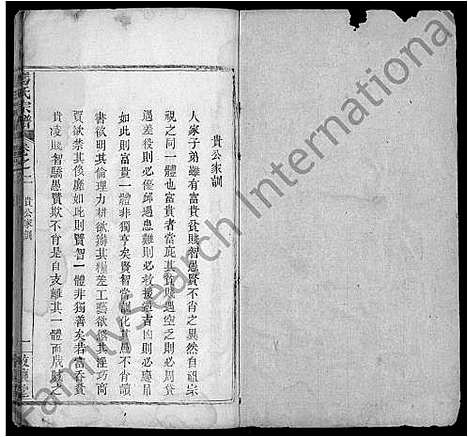 貴公家訓
人家子弟雖有富貴貧賤智愚賢不肖之異然自祖宗
視之同一體也富貴者當庇其貧賤遇空乏則必周貸
遇差役則必優卹遇患難則必救援遇吉凶則必慶吊
如此則富貴一體非獨亨矣賢智當訓化其愚不肖讀
書欲明其倫理力耕欲辦其糧差工藝欲修其淫巧商
賈欲禁其侈靡如此則賢智一體非獨善矣若富吞貧
貴凌賤智驕愚賢欺不肖是自支離其一體而戕賊
氏宗譜
卷之一
貴公家訓
一
FamilySearch International